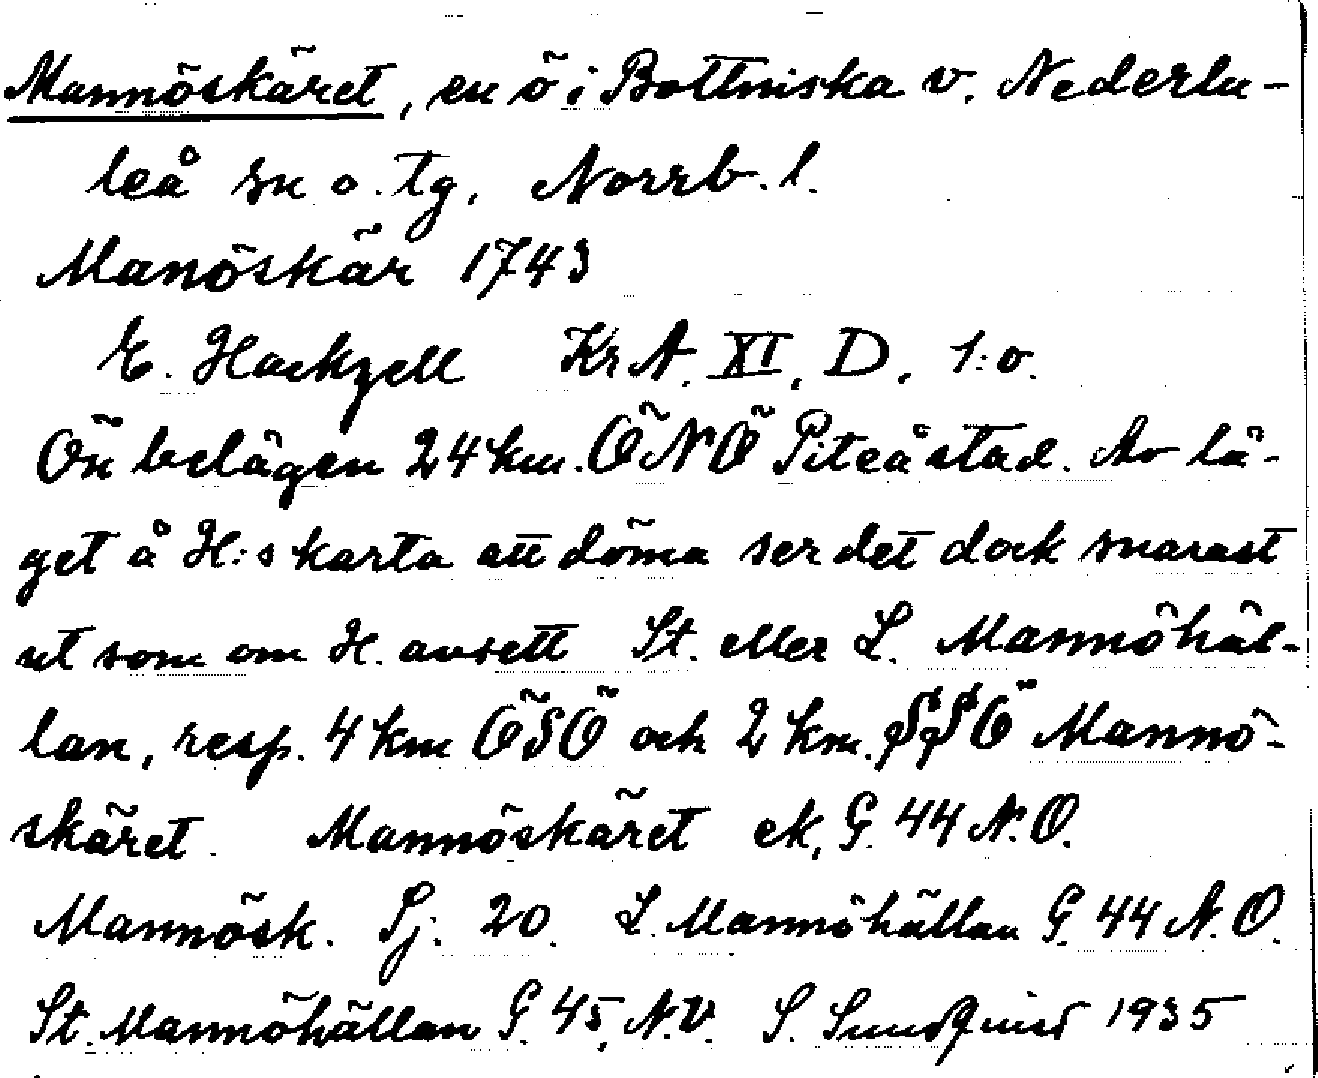 Mannöskäret, en ö i Bottniska v. Nederlu-
leå sn o. tg, Norrb. l.
Manöskär 1743
E. Hackzell KrA. XI. D. 1:o.
Ön belägen 24 km. ÖNÖ Piteå stad. Av lä-
get å H:s karta att döma ser det dock snarast
ut som om H. avsett St. eller L. Mannöhäl-
lan, resp. 4 km ÖSÖ och 2 km. SSÖ Mannö-
skäret. Mannöskäret ek. G. 44 N.O.
Mannösk. Sj. 20. L. Mannöhällan G. 44 N.O.
St. Mannöhällan G. 45, N.V. S. Sundquist 1935